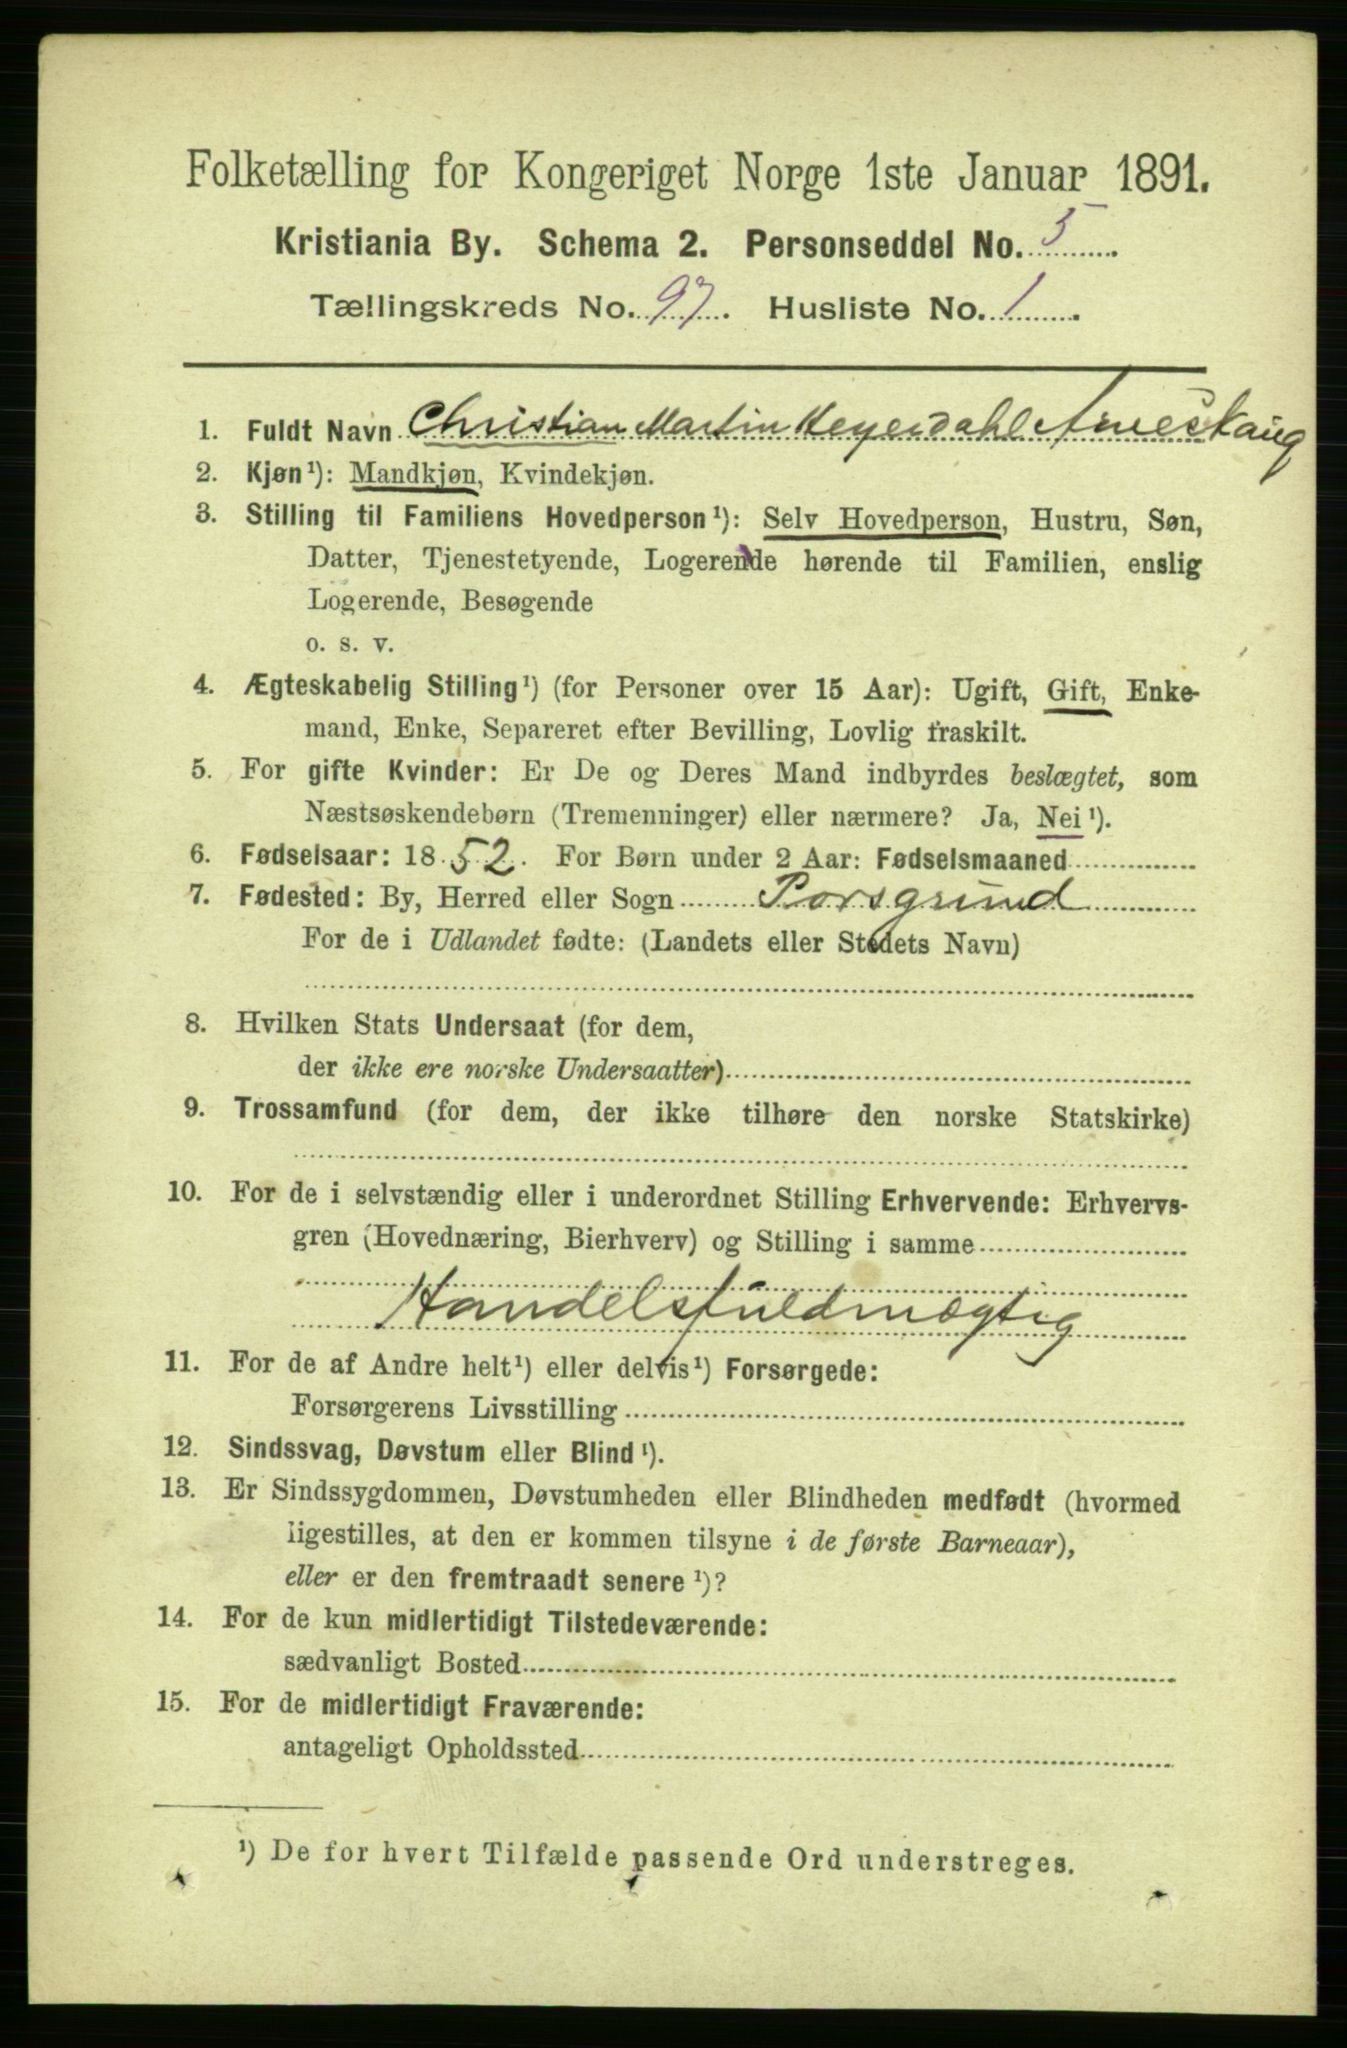 Folketælling for Kongeriget Norge 1ste Januar 1891.
Kristiania By. Schema 2. Personseddel No. 5.
Tællingskreds No. 97. Husliste No. 1.
1. Fuldt Navn Christian Martin Heyerdahl Arneskaug
2. Kjøn ¹): Mandkjøn, Kvindekjøn.
3. Stilling til Familiens Hovedperson ¹): Selv Hovedperson, Hustru, Søn,
Datter, Tjenestetyende, Logerende hørende til Familien, enslig
Logerende, Besøgende
o. s. v.
4. Ægteskabelig Stilling ¹) (for Personer over 15 Aar): Ugift, Gift, Enke-
mand, Enke, Separeret efter Bevilling, Lovlig fraskilt.
5. For gifte Kvinder: Er De og Deres Mand indbyrdes beslægtet, som
Næstsøskendebørn (Tremenninger) eller nærmere? Ja, Nei ¹).
6. Fødselsaar: 1852. For Børn under 2 Aar: Fødselsmaaned
7. Fødested: By, Herred eller Sogn Porsgrund
For de i Udlandet fødte: (Landets eller Stedets Navn)
8. Hvilken Stats Undersaat (for dem,
der ikke ere norske Undersaatter)
9. Trossamfund (for dem, der ikke tilhøre den norske Statskirke)
10. For de i selvstændig eller i underordnet Stilling Erhvervende: Erhvervs-
gren (Hovednæring, Bierhverv) og Stilling i samme
Handelsfuldmægtig
11. For de af Andre helt ¹) eller delvis ¹) Forsørgede:
Forsørgerens Livsstilling
12. Sindssvag, Døvstum eller Blind ¹).
13. Er Sindssygdommen, Døvstumheden eller Blindheden medfødt (hvormed
ligestilles, at den er kommen tilsyne i de første Barneaar),
eller er den fremtraadt senere ¹)?
14. For de kun midlertidigt Tilstedeværende:
sædvanligt Bosted
15. For de midlertidigt Fraværende:
antageligt Opholdssted
¹) De for hvert Tilfælde passende Ord understreges.